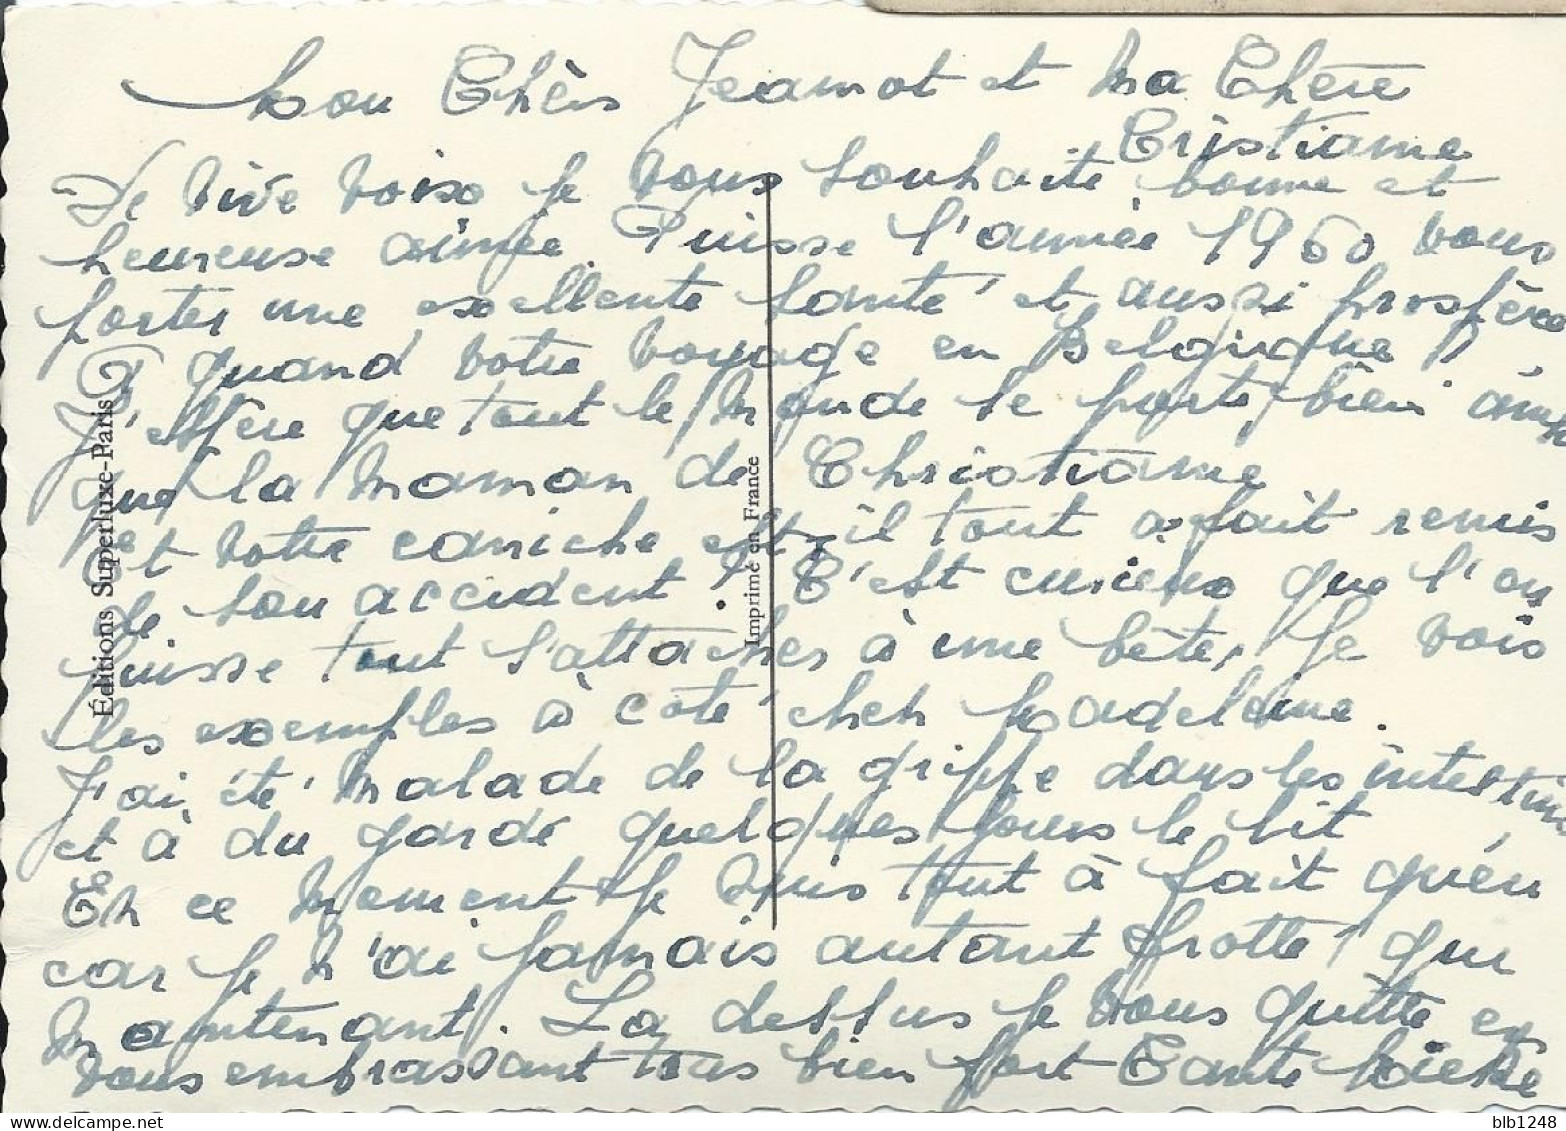 Mon Chèrs Jeannot et Ma Chère
Cristiane
De vive voix je vous souhaite bonne et
heureuse année. Puisse l'année 1960 vous
porter une exellente santé et aussi prospère
A quand votre voyage en Belgique ?
J'espère que tout le monde se porte bien ainsi
que la Maman de Christiane
et votre caniche est-il tout à fait remis
de son accident ? C'est curieux que l'on
puisse tant s'attacher à une bête, Je vois
les exemples à coté chez Madeleine.
J'ai été malade de la grippe dans les intestins
et à du garde quelques jours le lit
En ce moment je suis tout à fait guéri
car je n'ai jamais autant frotté que
maintenant. La dessus je vous quitte en
vous embrassant tous bien fort Tante
Éditions Superluxe-Paris
Imprimé en France
blb1248